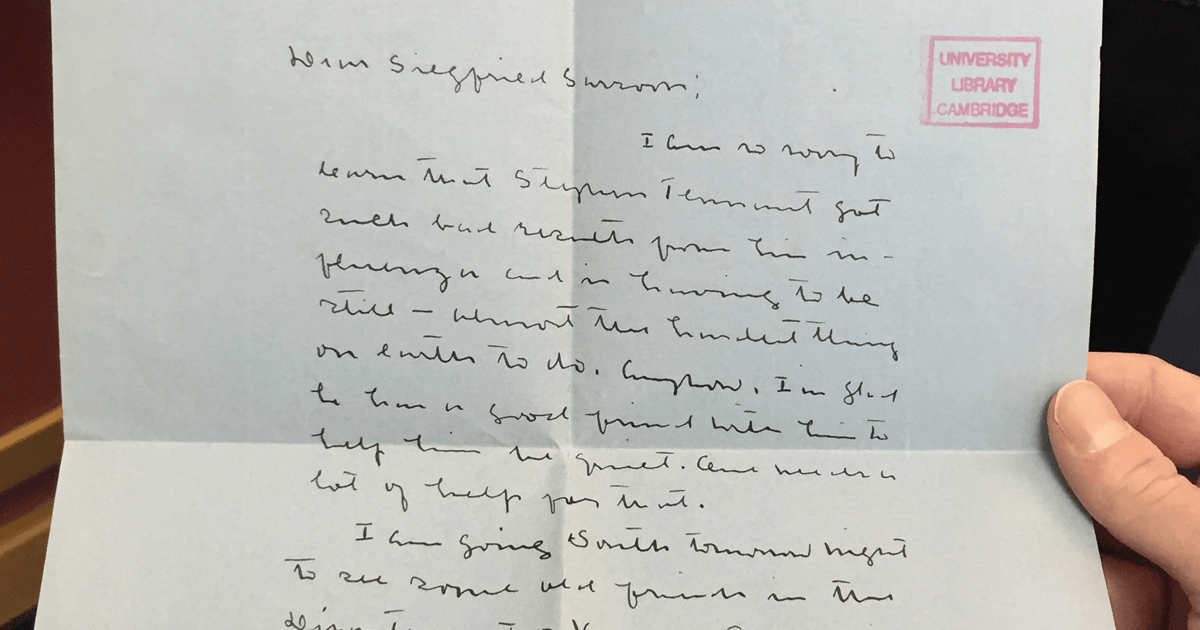 Dear Siegfried Sassoon;
UNIVERSITY
LIBRARY
CAMBRIDGE
I am so sorry to
learn that Stephen Tennant got
such bad results from his in-
fluenza and is having to be
still — almost the hardest thing
on earth to do. Anyhow, I'm glad
he has a good friend with him to
help him be quiet. One needs a
lot of help for that.
I am going South tomorrow night
to see some old friends in the